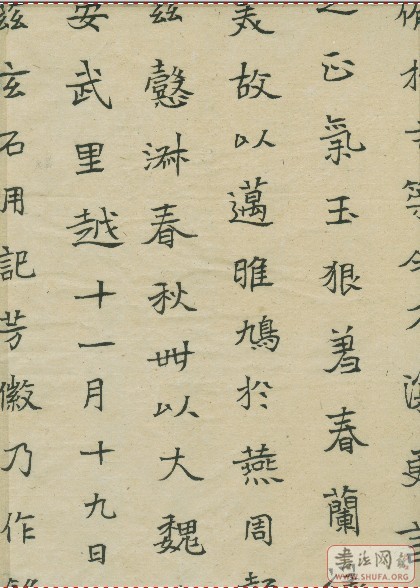 之正氣玉狠着春蘭
美故以邁雎鳩於燕周
茲懿淋春秋卌以大魏
安武里越十一月十九日
茲玄石用記芳徽乃作
書法网
WWW.SHUFA.ORG